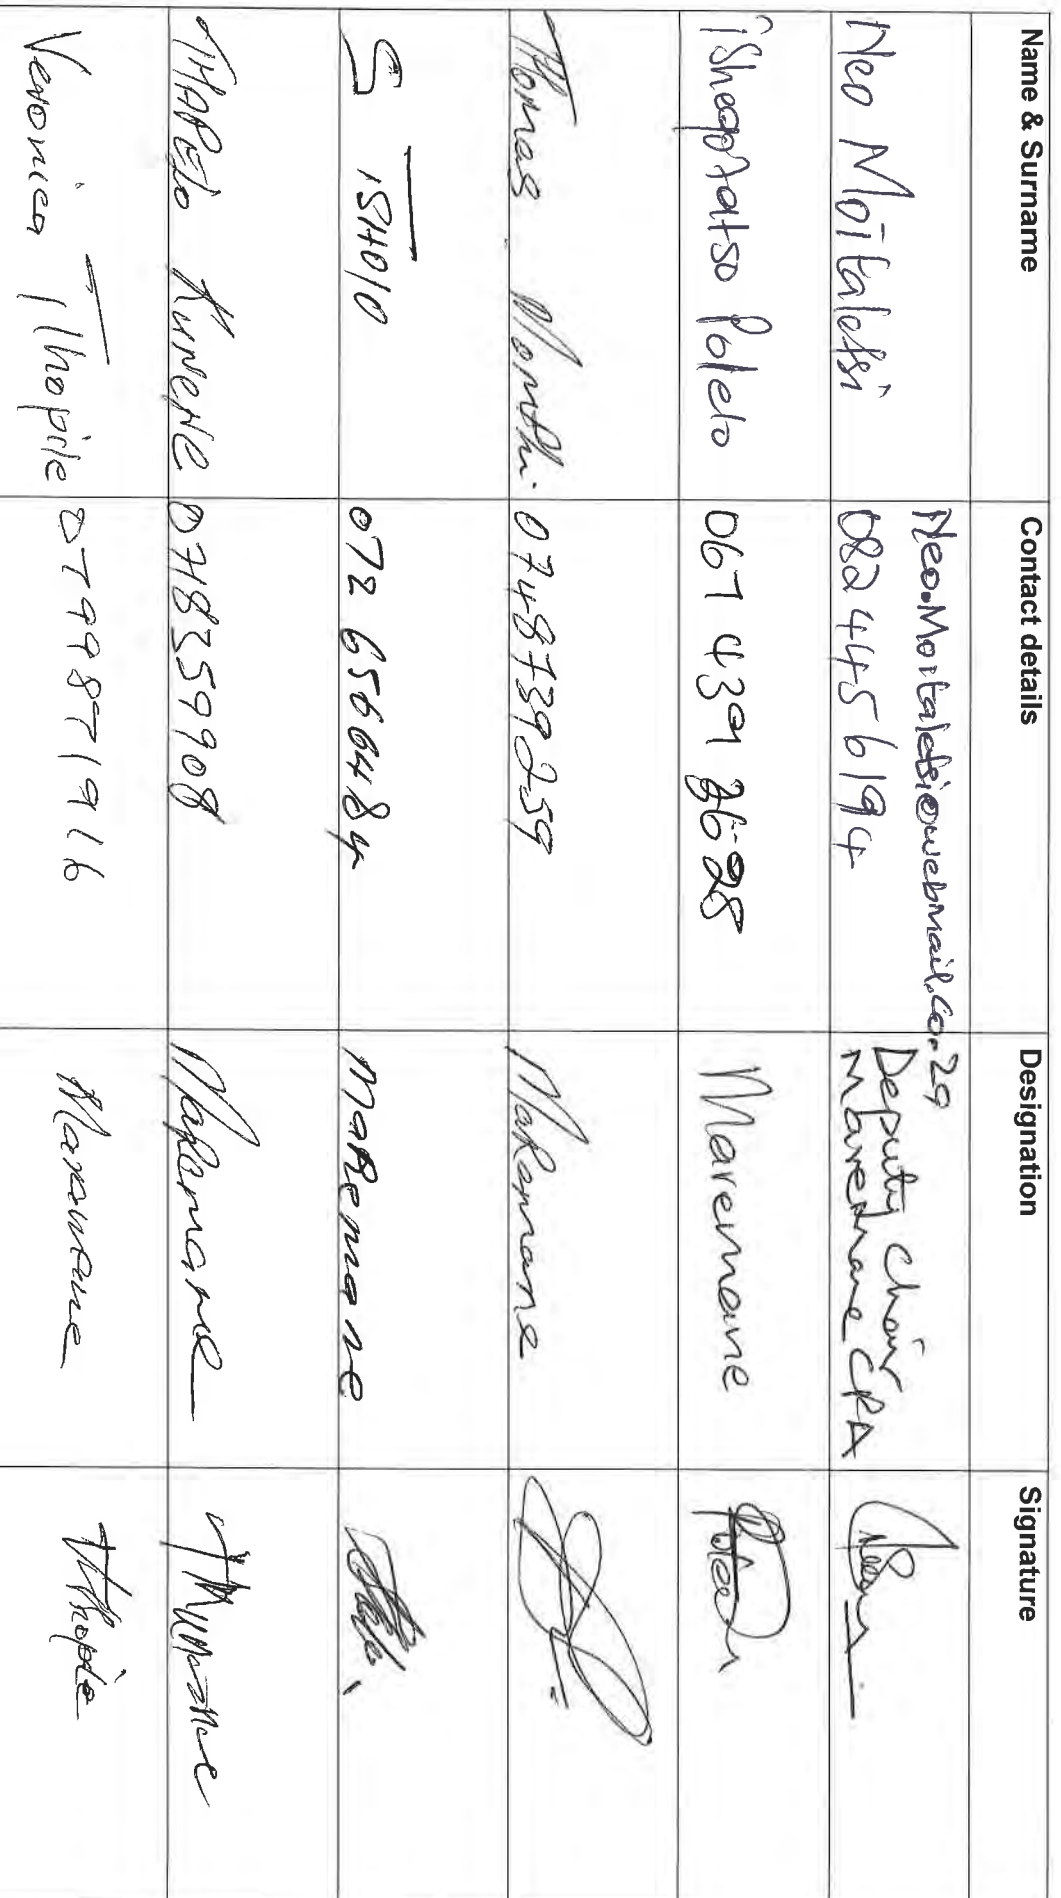 Name & Surname Contact details Designation Signature
Neo Moitaletsi Neo.Moitaletsi@webmail.co.za Deputy Chair
082 445 6194 Maremane CPA
Tshegofatso Polelo 067 439 8628 Maremane
Thomas 0748739259 Maremane
S TSHOLO 072 6566484 Maremane
THAPELO KUNENE 0718359908 Maremane
Veronica Tlhopile 0799871916 Maremane Tlhopile